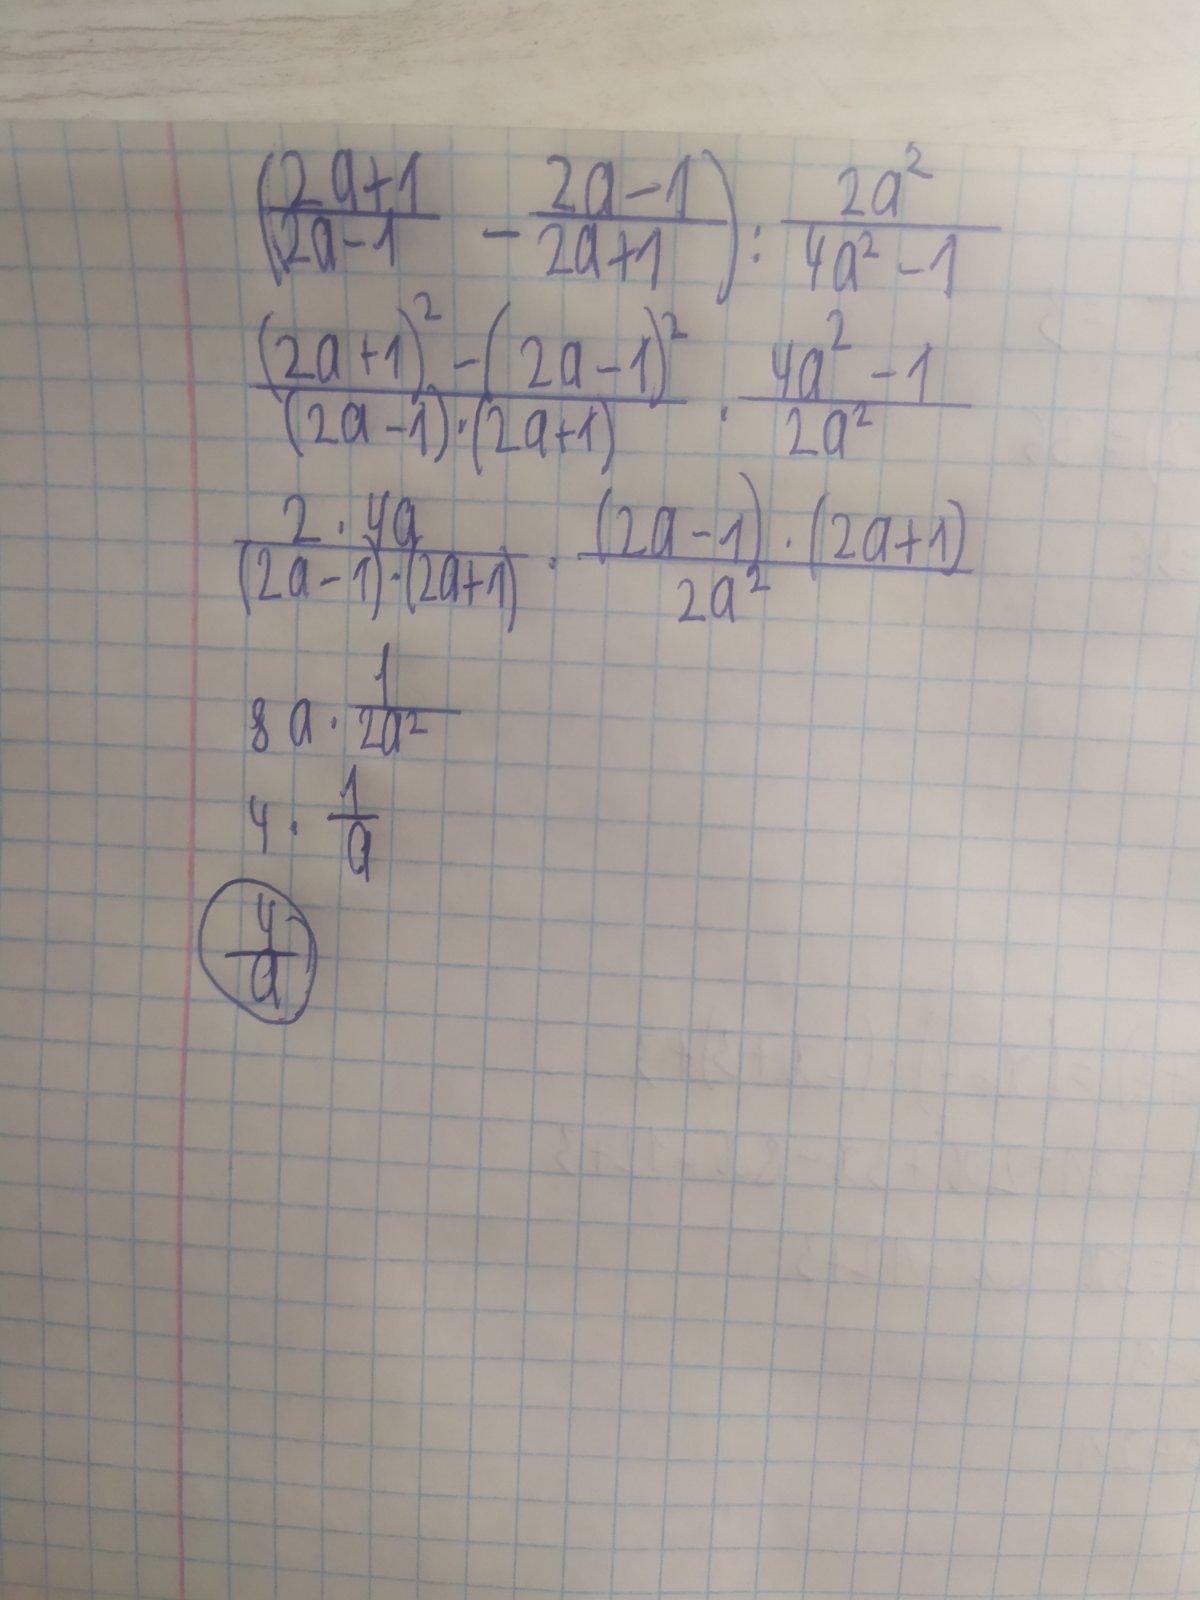 (2a+1/2a-1 - 2a-1/2a+1) : 2a²/4a²-1
(2a+1)²-(2a-1)²/(2a-1)·(2a+1) · 4a²-1/2a²
2·4a/(2a-1)·(2a+1) · (2a-1)·(2a+1)/2a²
8a · 1/2a²
4 · 1/a
4/a